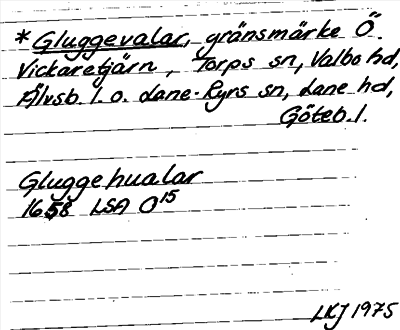 * Gluggevalar, gränsmärke Ö.
Vickaretjärn, Torps sn, Valbo hd,
Älvsb. l. o. Lane-Ryrs sn, Lane hd,
Göteb. l.
Gluggehualar
1658 LSA O15
LKJ 1975